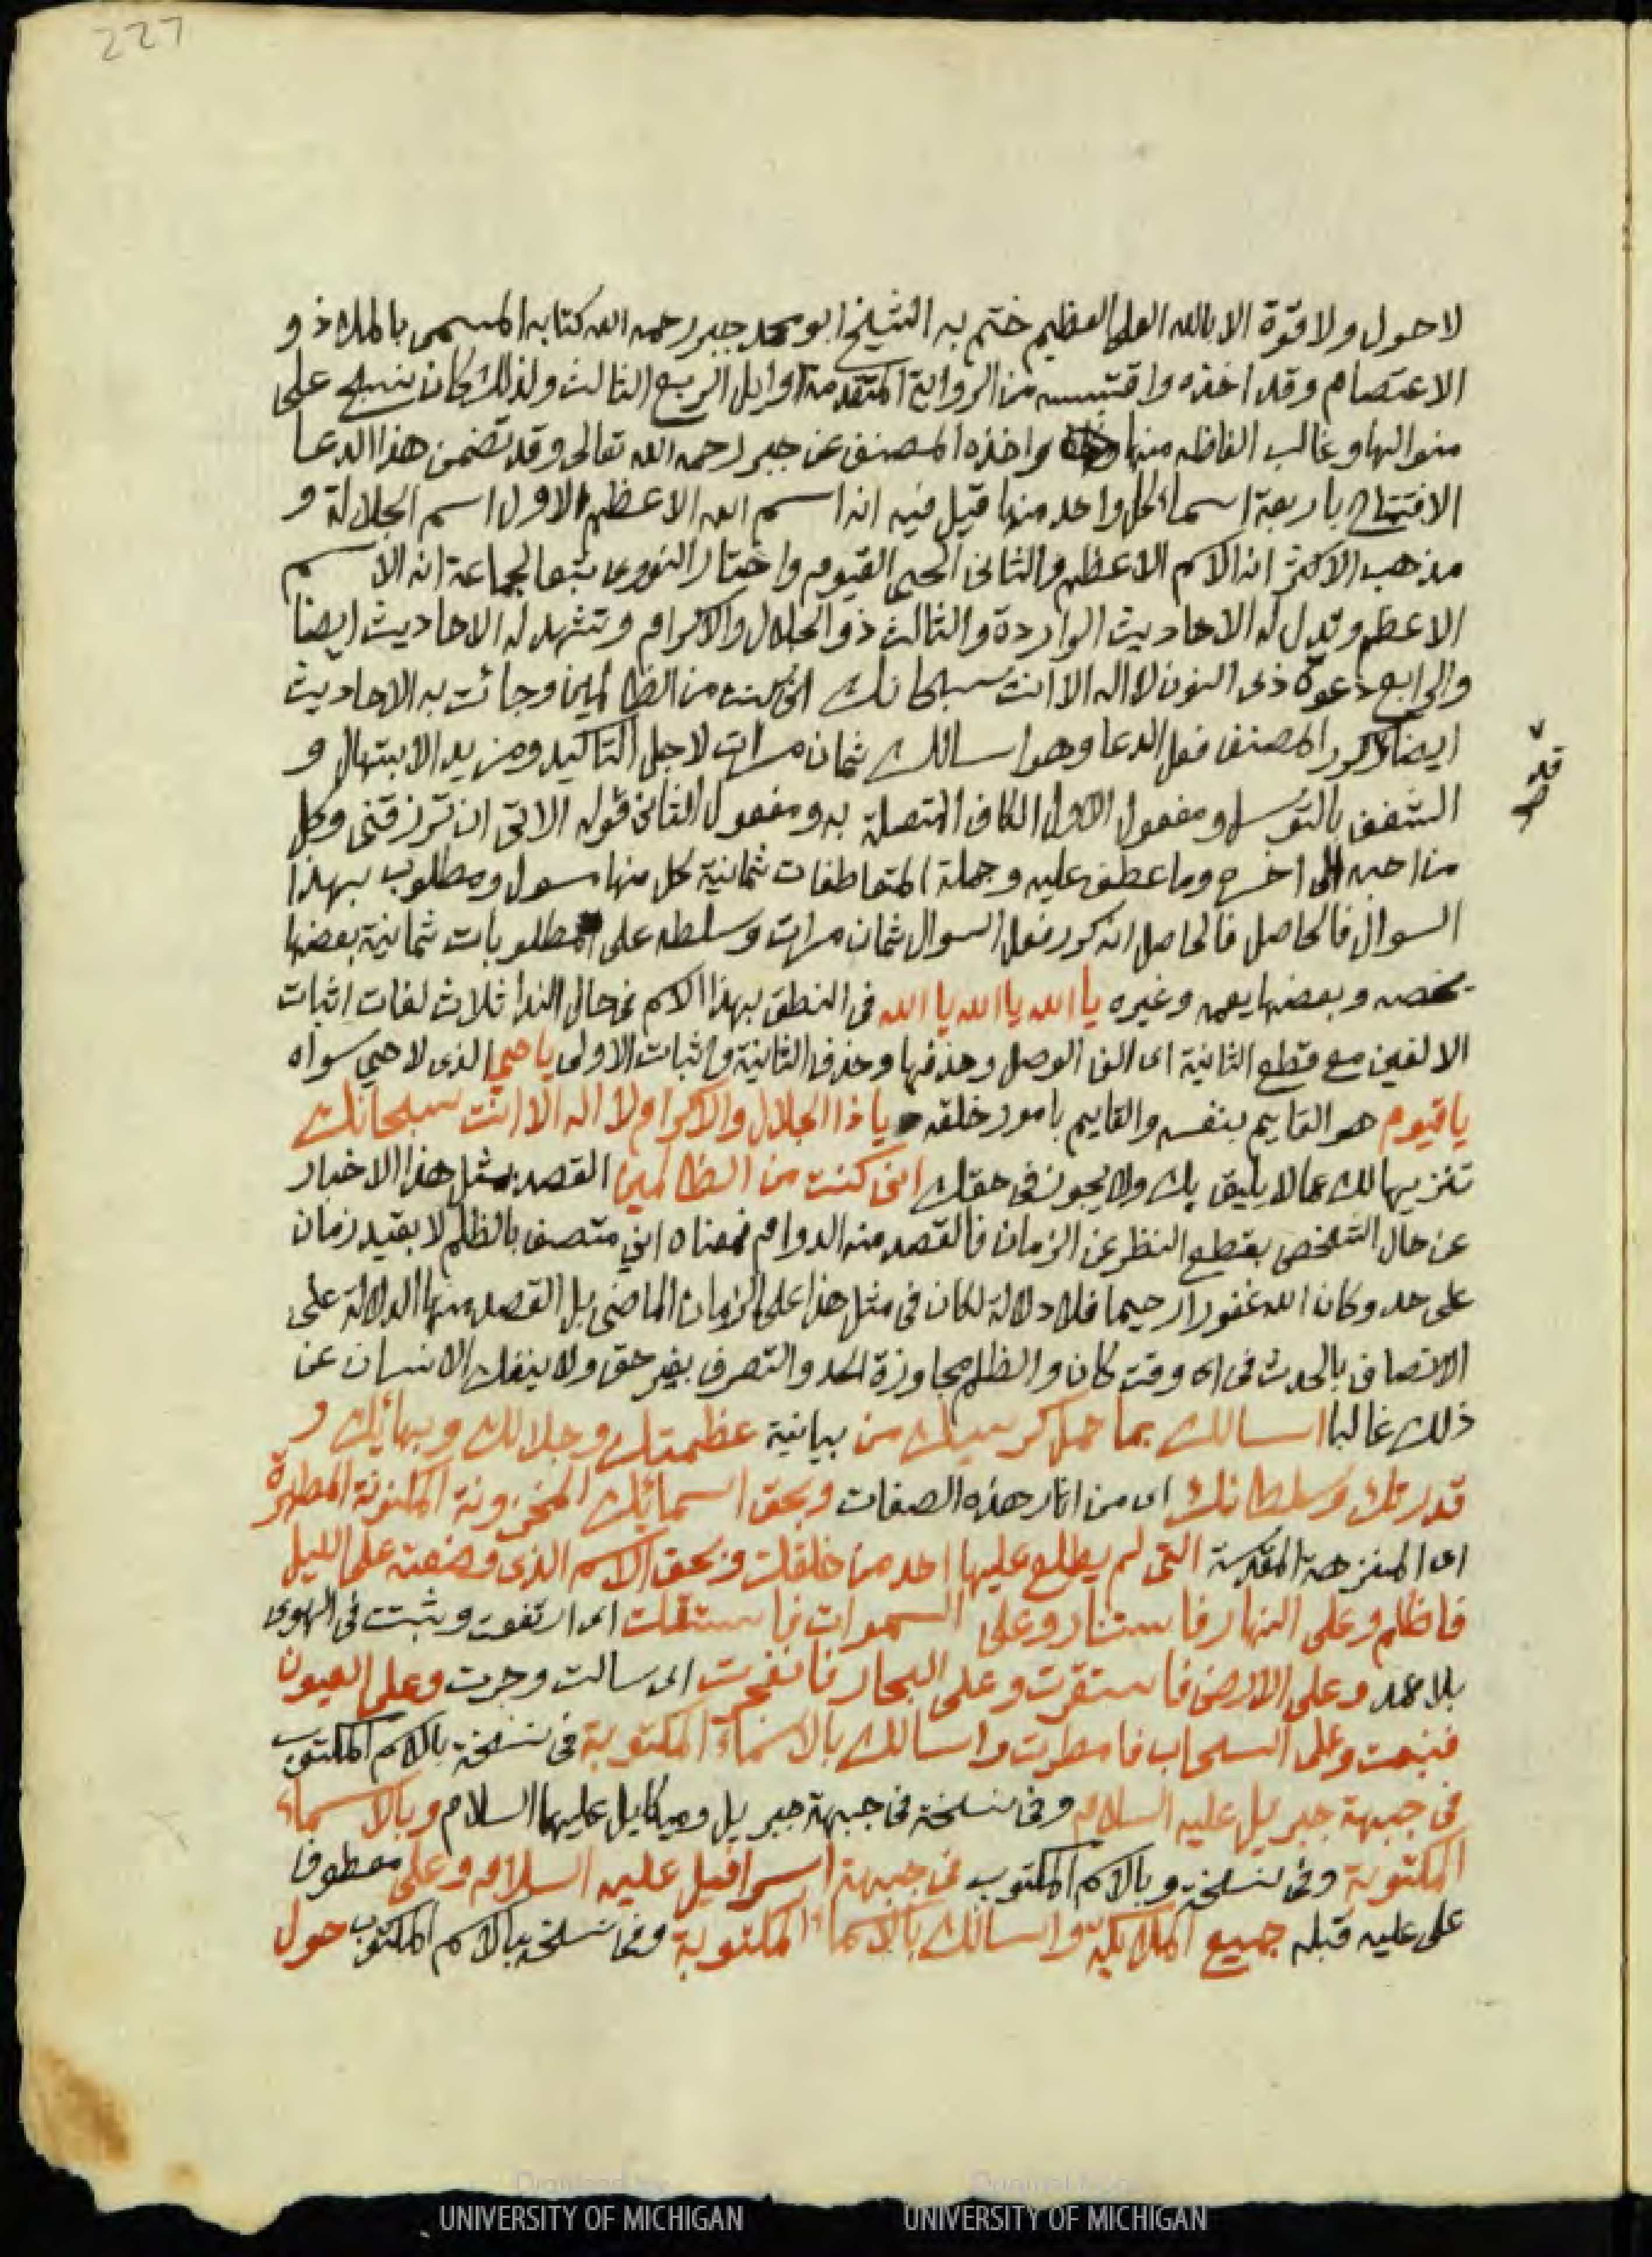 227
لاحول ولا قوة الا بالله العلي العظيم ختم به الشيخ ابو محمد جبر رحمه الله كتابه المسمى بالملاذ و
الاعتصام وقد اخذه واقتبسه من الرواية المتقدمة اوايل الربع الثالث ولذلك كان ينسج على
منوالها وغالب الفاظه منها واخذه المصنف عن جبر رحمه الله تعالى وقد تضمن هذا الدعا
الافتتاح باربعة اسماء كل واحد منها قيل فيه انه اسم الله الاعظم الاول اسم الجلالة و
مذهب الاكثر انه الاسم الاعظم والثاني الحي القيوم واختار النووي تبعا لجماعة انه الاسم
الاعظم وتدل له الاحاديث الواردة والثالث ذو الجلال والاكرام وتشهد له الاحاديث ايضا
والرابع دعوة ذي النون لا اله الا انت سبحانك اني كنت من الظالمين وجائت به الاحاديث
ايضا وكرر المصنف فعل الدعا وهو اسالك ثمان مرات لاجل التاكيد ومزيد الابتهال و
قد
صح
الشغف بالتوسل ومفعول الاول الكاف المتصلة به ومفعول الثاني قوله الاتي ان ترزقني وكل
من احبه الى اخره وما عطف عليه وجملة المتعاطفات ثمانية كل منها مسول ومطلوب بهذا
السوال فالحاصل فالحاصل انه كرر فعل السوال ثمان مرات وسلطه على المطلوبات ثمانية بعضها
يخصه وبعضها يعمه وغيره يا الله يا الله يا الله في النطق بهذا الاسم في حال الندا ثلاث لغات اثبات
الالفين مع قطع الثانية اي الف الوصل وحذفها وحذف الثانية واثبات الاولى يا حي الذي لا حي سواه
يا قيوم هو القايم بنفسه والقايم بامور خلقه يا ذا الجلال والاكرام لا اله الا انت سبحانك
تنزيها لك عما لا يليق بك ولا يجوز في حقك اني كنت من الظالمين القصد بمثل هذا الاخبار
عن حال الشخص بقطع النظر عن الزمان فالقصد منه الدوام فمعناه اني متصف بالظلم لا بقيد زمان
على حد وكان الله غفورا رحيما فلا دلالة لكان في مثل هذا على الزمان الماضي بل القصد منها الدلالة على
الاتصاف بالحدث في اي وقت كان والظلم مجاوزة الحد والتصرف بغير حق ولا ينفك الانسان عن
ذلك غالبا اسالك بما حمل كرسيك من بيانية عظمتك وجلالك وبهائك و
قدرتك وسلطانك اي من اثار هذه الصفات وبحق اسمائك المخزونة المكنونة المطهرة
اي المنزهة المقدسة التي لم يطلع عليها احد من خلقك وبحق الاسم الذي وضعته على الليل
فاظلم وعلى النهار فاستنار وعلى السموات فاستقلت اي ارتفعت وثبتت في الهوى
بلا عمد وعلى الارض فاستقرت وعلى البحار فانفجرت اي سالت وجرت وعلى العيون
فنبعت وعلى السحاب فامطرت واسالك بالاسماء المكتوبة في نسخة بالاسم المكتوب
في جبهة جبريل عليه السلام وفي نسخة في جبهة جبريل وميكايل عليهما السلام وبالاسماء
المكتوبة وفي نسخة وبالاسم المكتوب في جبهة اسرافيل عليه السلام وعلى معطوفا
على عليه قبله جميع الملايكة واسالك بالاسماء المكتوبة وفي نسخة بالاسم المكتوب حول
UNIVERSITY OF MICHIGAN UNIVERSITY OF MICHIGAN